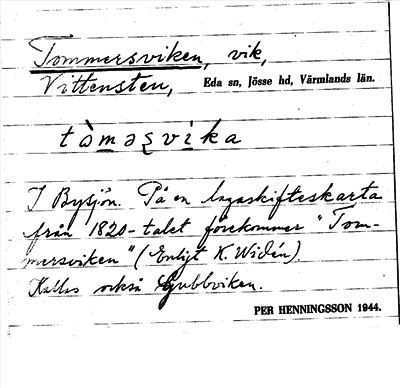 Tommersviken, vik,
Vittensten, Eda sn, Jösse hd, Värmlands län.
tòməʂvika
I Bysjön. På en lagaskifteskarta
från 1820-talet förekommer "Tom-
mersviken" (Enligt K. Widén).
Kallas också Gubbviken.
PER HENNINGSSON 1944.